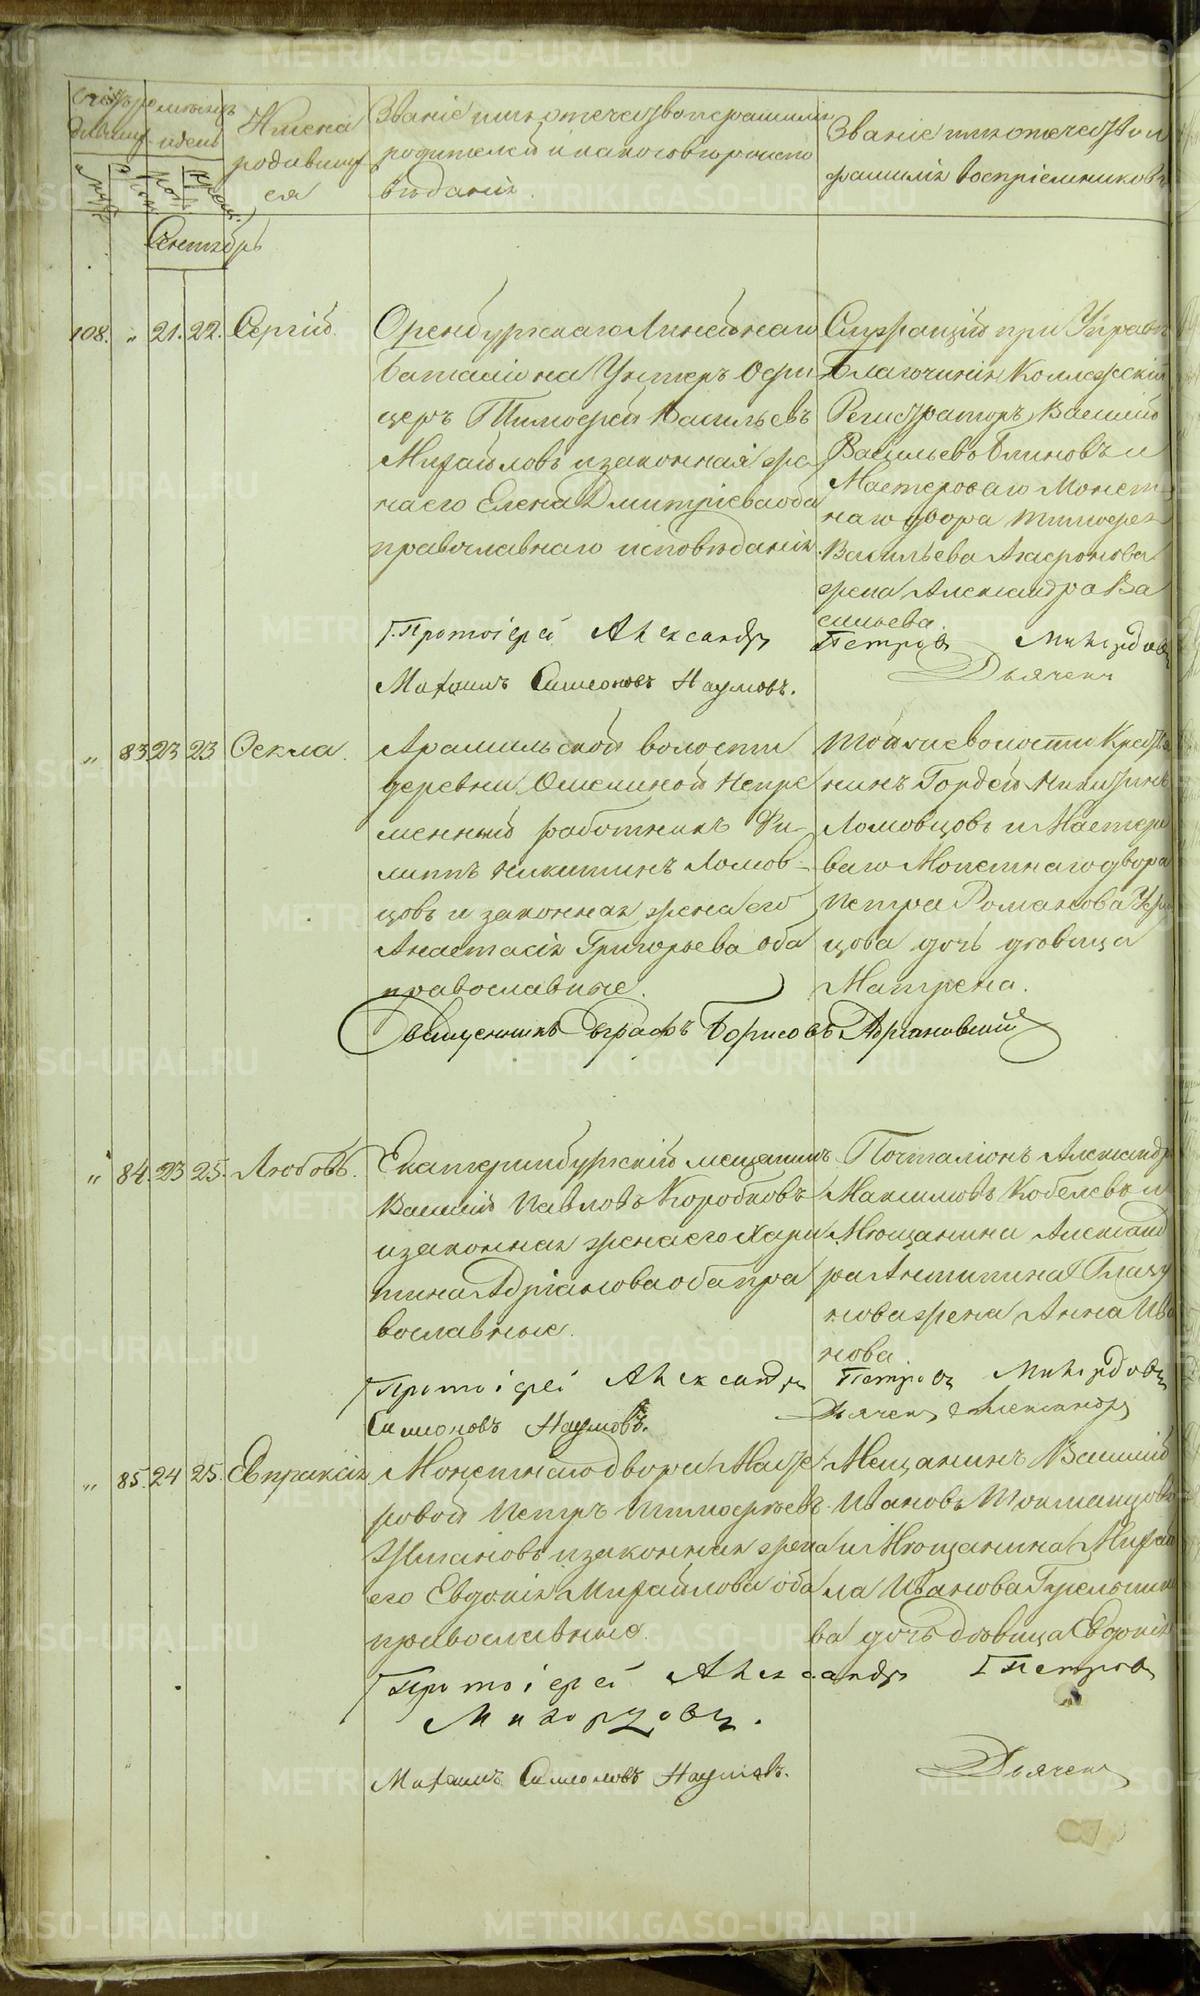 Счетъ родившихся
Мѣсяцъ и день
Имена родившихся
Званіе имя отечество и фамилія
родителей и какого вѣроиспо
вѣданія.
Званіе имя отечество и
фамилія воспріемниковъ
муж.
жен.
рож.
крещ.
Сентябрь
108. „ 21. 22. Сергій.
Оренбургскаго Линейнаго
баталіона Унтеръ Офи
церъ Тимофей Васильевъ
Михайловъ и законная же
на его Елена Дмитріева оба
православнаго исповѣданія.
Служащій при Управѣ
Благочинія Коллежскій
Регистраторъ Василій
Васильевъ Блиновъ и
Мастероваго Монет
наго двора Тимофея
Васильева
жена Александра Ва
сильева.
Протоіерей Александръ Петровъ
Михаилъ Симеоновъ Наумовъ.
Дьячекъ
„ 83 23 23 Фекла.
Арамильской волости
деревни непре
менный работникъ Фи
липпъ Никитинъ Ломов
цовъ и законная жена его
Анастасія Григорьева оба
православные.
той же волости Кресть
нинъ Гордей Никитинъ
Ломовцовъ и Мастеро
ваго Монетнаго двора
Петра Романова
цова дочь девица
Матрена.
Священникъ Евграфъ Борисовъ
„ 84. 23 25. Любовь.
Екатеринбургскій мещанинъ
Василій Павловъ Коробковъ
и законная жена его Хари
тина Адріанова оба пра
вославные.
Почталіонъ Александръ
Максимовъ Кобелевъ и
Мещанина Александ
ра Антипина Глазу
нова жена Анна Ива
нова
Протоіерей Александръ Петровъ
Симеоновъ Наумовъ.
Дьячекъ Александръ
„ 85. 24 25. Евпраксія
Монетнаго двора Масте
ровой Петръ Тимофеевъ
и законная жена
его Евдокія Михайлова оба
православные.
Мещанинъ Василій
Ивановъ
и Мещанина Михаи
ла Иванова
ва дочь девица Евдокія
Протоіерей Александръ Петровъ
Михаилъ Симеоновъ Наумовъ.
Дьячекъ
METRIKI.GASO-URAL.RU